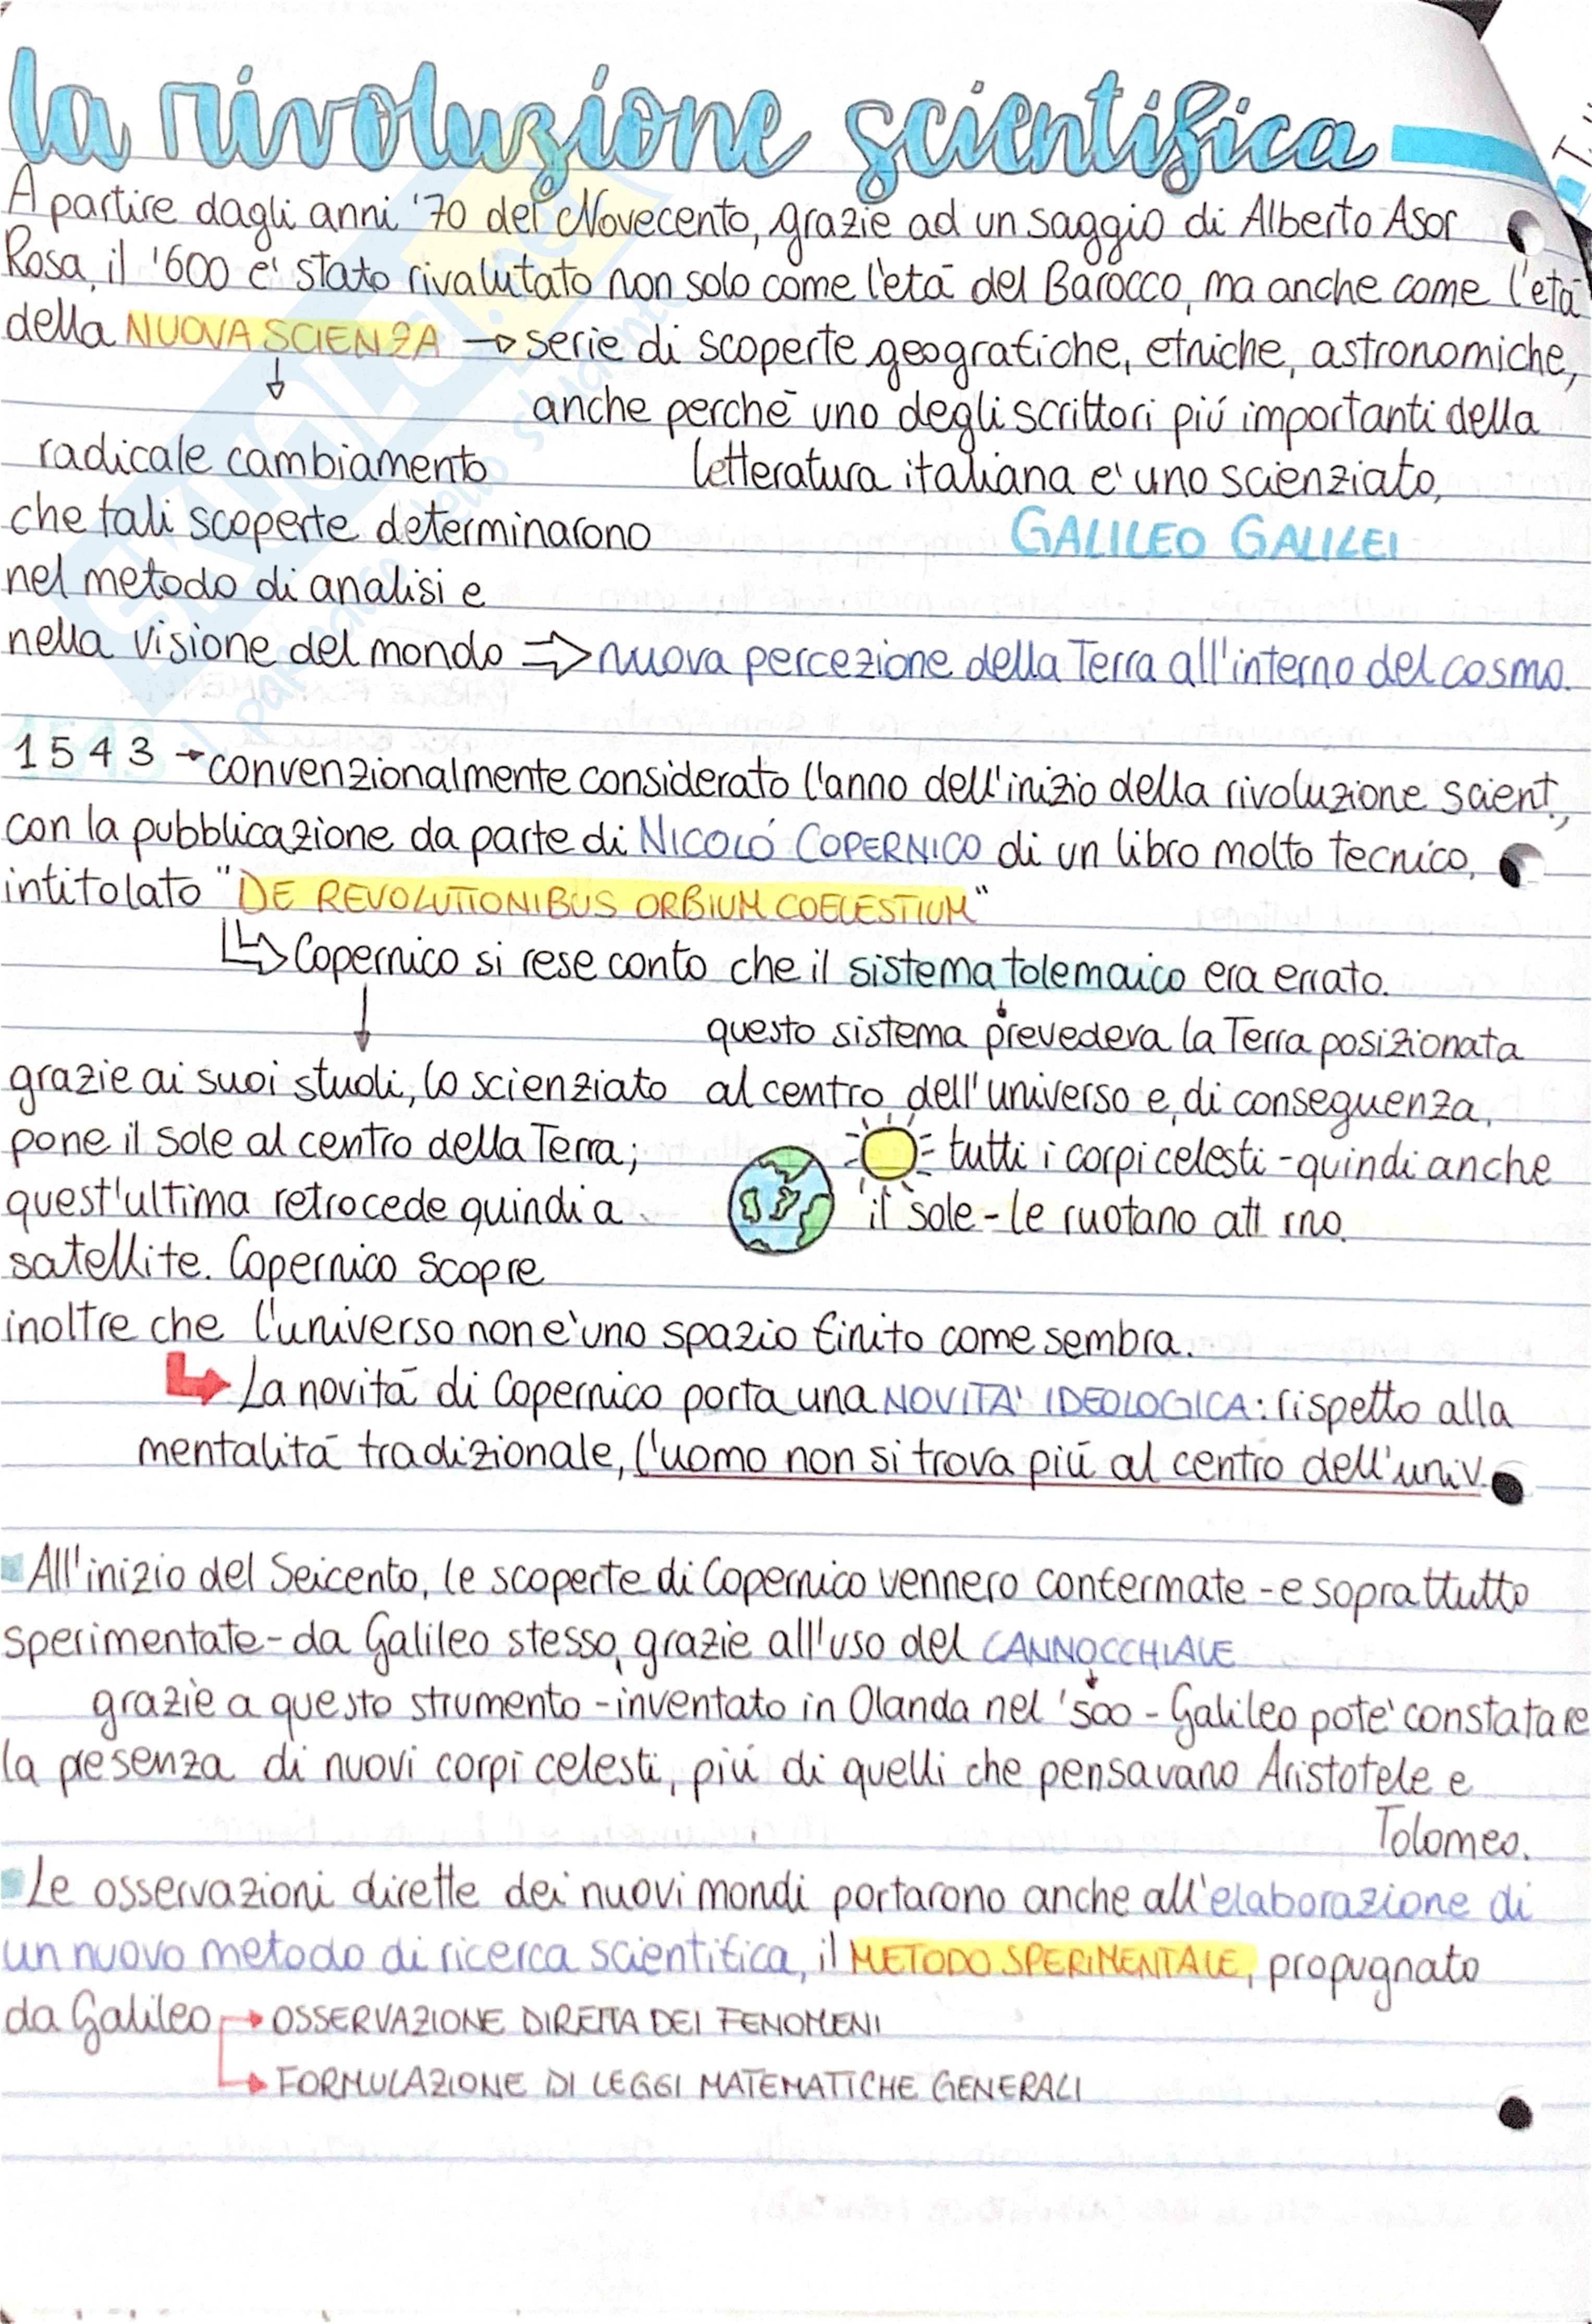 la rivoluzione scientifica
A partire dagli anni '70 del Novecento, grazie ad un saggio di Alberto Asor
Rosa, il '600 e' stato rivalutato non solo come l'età del Barocco, ma anche come l'età
della NUOVA SCIENZA → serie di scoperte geografiche, etniche, astronomiche,
anche perché uno degli scrittori più importanti della
letteratura italiana e' uno scienziato,
GALILEO GALILEI
radicale cambiamento
che tali scoperte determinarono
nel metodo di analisi e
nella visione del mondo ⇒ nuova percezione della Terra all'interno del cosmo.
1543 → convenzionalmente considerato l'anno dell'inizio della rivoluzione scient.,
con la pubblicazione da parte di NICOLÓ COPERNICO di un libro molto tecnico,
intitolato "DE REVOLUTIONIBUS ORBIUM COELESTIUM"
Copernico si rese conto che il sistema tolemaico era errato.
questo sistema prevedeva la Terra posizionata
al centro dell'universo e, di conseguenza,
tutti i corpi celesti - quindi anche
il sole - le ruotano att rno.
grazie ai suoi studi, lo scienziato
pone il sole al centro della Terra;
quest'ultima retrocede quindi a
satellite. Copernico scopre
inoltre che l'universo non e' uno spazio finito come sembra.
La novità di Copernico porta una NOVITA' IDEOLOGICA: rispetto alla
mentalità tradizionale, l'uomo non si trova più al centro dell'univ.
All'inizio del Seicento, le scoperte di Copernico vennero confermate - e soprattutto
sperimentate - da Galileo stesso, grazie all'uso del CANNOCCHIALE
grazie a questo strumento - inventato in Olanda nel '500 - Galileo pote' constatare
la presenza di nuovi corpi celesti, più di quelli che pensavano Aristotele e
Tolomeo.
Le osservazioni dirette dei nuovi mondi portarono anche all'elaborazione di
un nuovo metodo di ricerca scientifica, il METODO SPERIMENTALE, propugnato
da Galileo → OSSERVAZIONE DIRETTA DEI FENOMENI
→ FORMULAZIONE DI LEGGI MATEMATICHE GENERALI